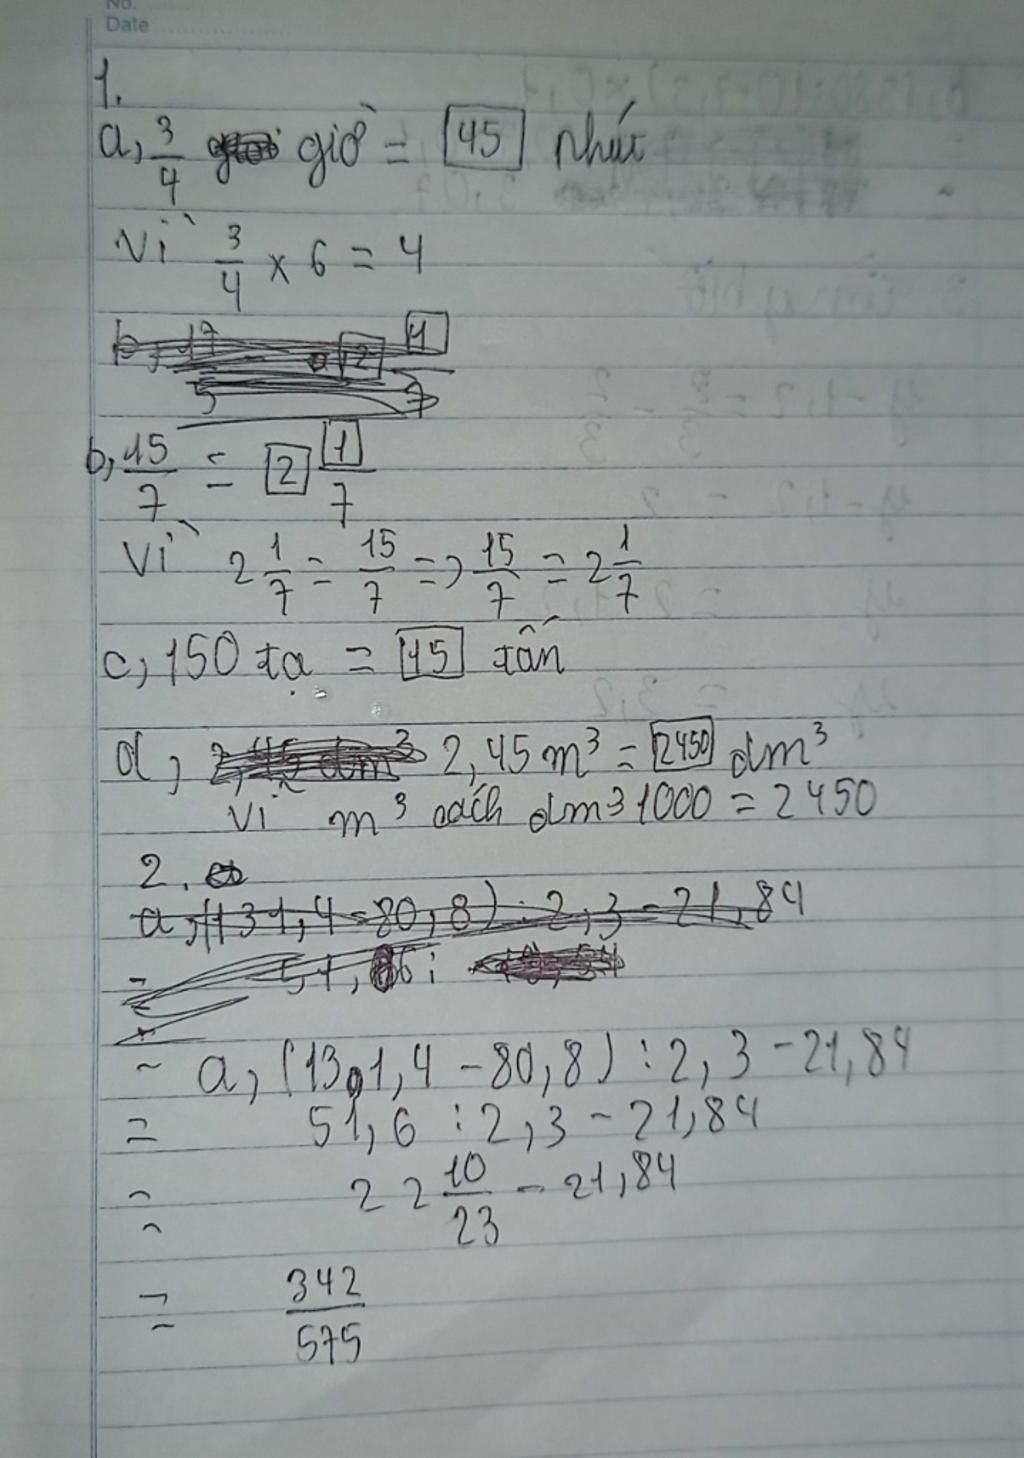 No.
Date
1.
a, 3/4 giờ = 45 phút
Vì 3/4 × 6 = 4
b, 15/7 = 2 1/7
Vì 2 1/7 = 15/7 => 15/7 = 2 1/7
c, 150 tạ = 15 tấn
d, 2,45 m³ = 2450 dm³
Vì m³ cách dm³ 1000 = 2450
2.
a, (131,4 - 80,8) : 2,3 - 21,84
= 51,6 :
- a, (131,4 - 80,8) : 2,3 - 21,84
= 51,6 : 2,3 - 21,84
= 22 10/23 - 21,84
= 342/575